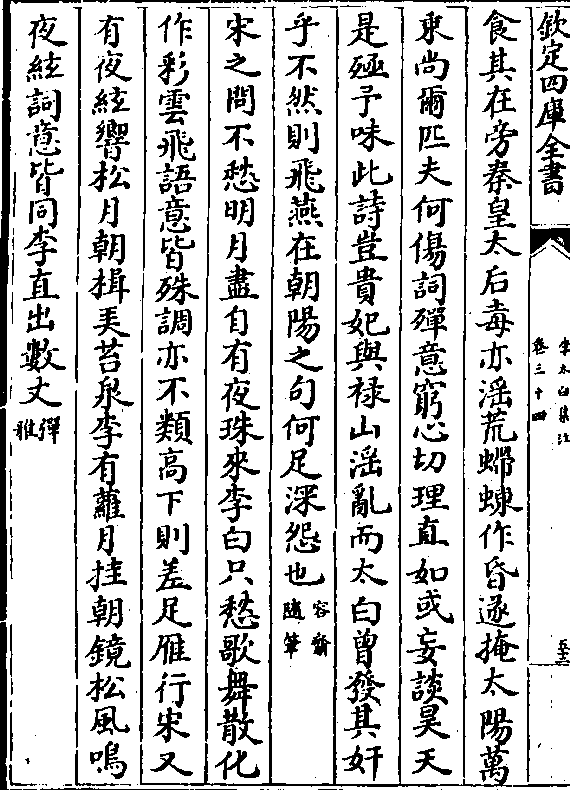 欽定四庫全書
李太白集注
卷三十四
食其在旁秦皇太后毒亦淫荒螮蝀作昏遂掩太陽萬
乘尚爾匹夫何傷詞殫意窮心切理直如或妄談昊天
是殛予味此詩豈貴妃與祿山淫亂而太白曾發其奸
乎不然則飛燕在朝陽之句何足深怨也容齋隨筆
宋之問不愁明月盡自有夜珠來李白只愁歌舞散化
作彩雲飛語意皆殊調亦不類高下則差足雁行宋又
有夜絃響松月朝楫弄苔泉李有蘿月挂朝鏡松風鳴
夜絃詞意皆同李直出數丈彈雅